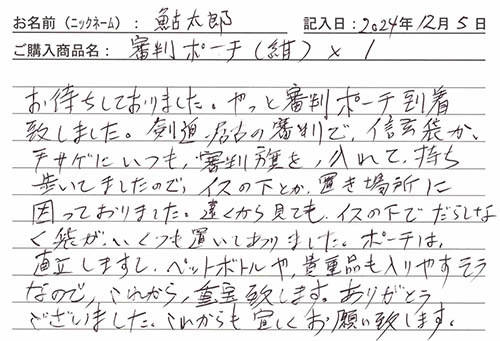 お名前（ニックネーム）：鮎太郎　記入日：2024年12月5日
ご購入商品名：審判ポーチ（紺）×1
お待ちしておりました。やっと審判ポーチ到着
致しました。剣道、居合の審判で、信玄袋か、
手サゲにいつも、審判旗を、入れて、持ち
歩いてましたので、イスの下とか、置き場所に
困っておりました。遠くから見ても、イスの下で だらしな
く袋が、いくつも置いてありました。ポーチは、
直立しますし、ペットボトルや、貴重品も入りやすそう
なので、これから、重宝致します。ありがとう
ございました。これからも宜しくお願い致します。